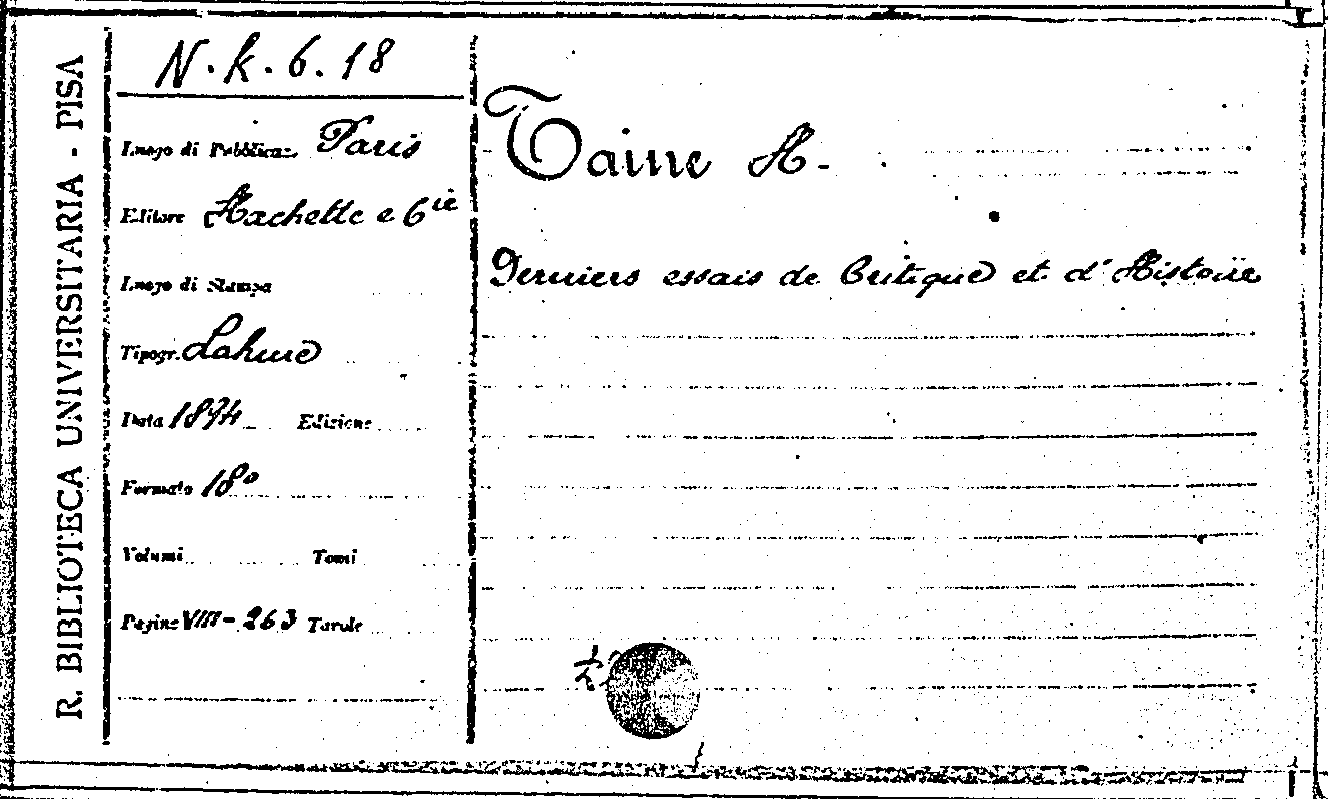 R. BIBLIOTECA UNIVERSITARIA - PISA
N. k. 6. 18
Luogo di Pubblicaz. Paris
Editore Hachette e Cie
Luogo di Stampa
Tipogr. Lahure
Data 1894 Edizione
Formato 18º
Volumi Tomi
Pagine VIII - 263 Tavole
Taine H.
Derniers essais de Critique et d'Histoire